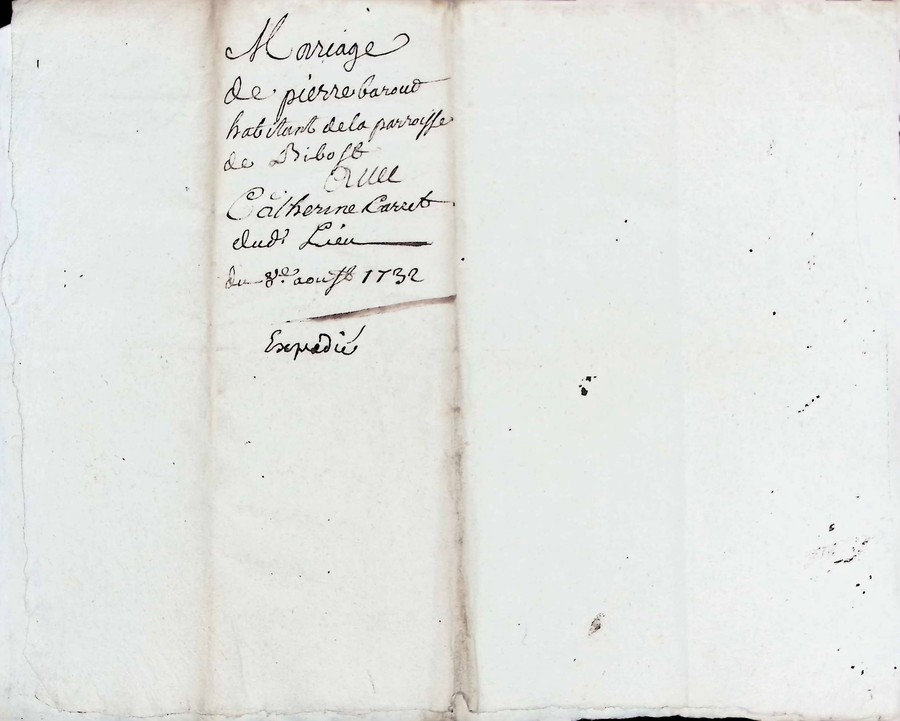 Marriage
de pierre baroud
habitant de la parroisse
de Ribost
avec
Catherine Carret
dudt Lieu
du 8e aoust 1732
Expedié